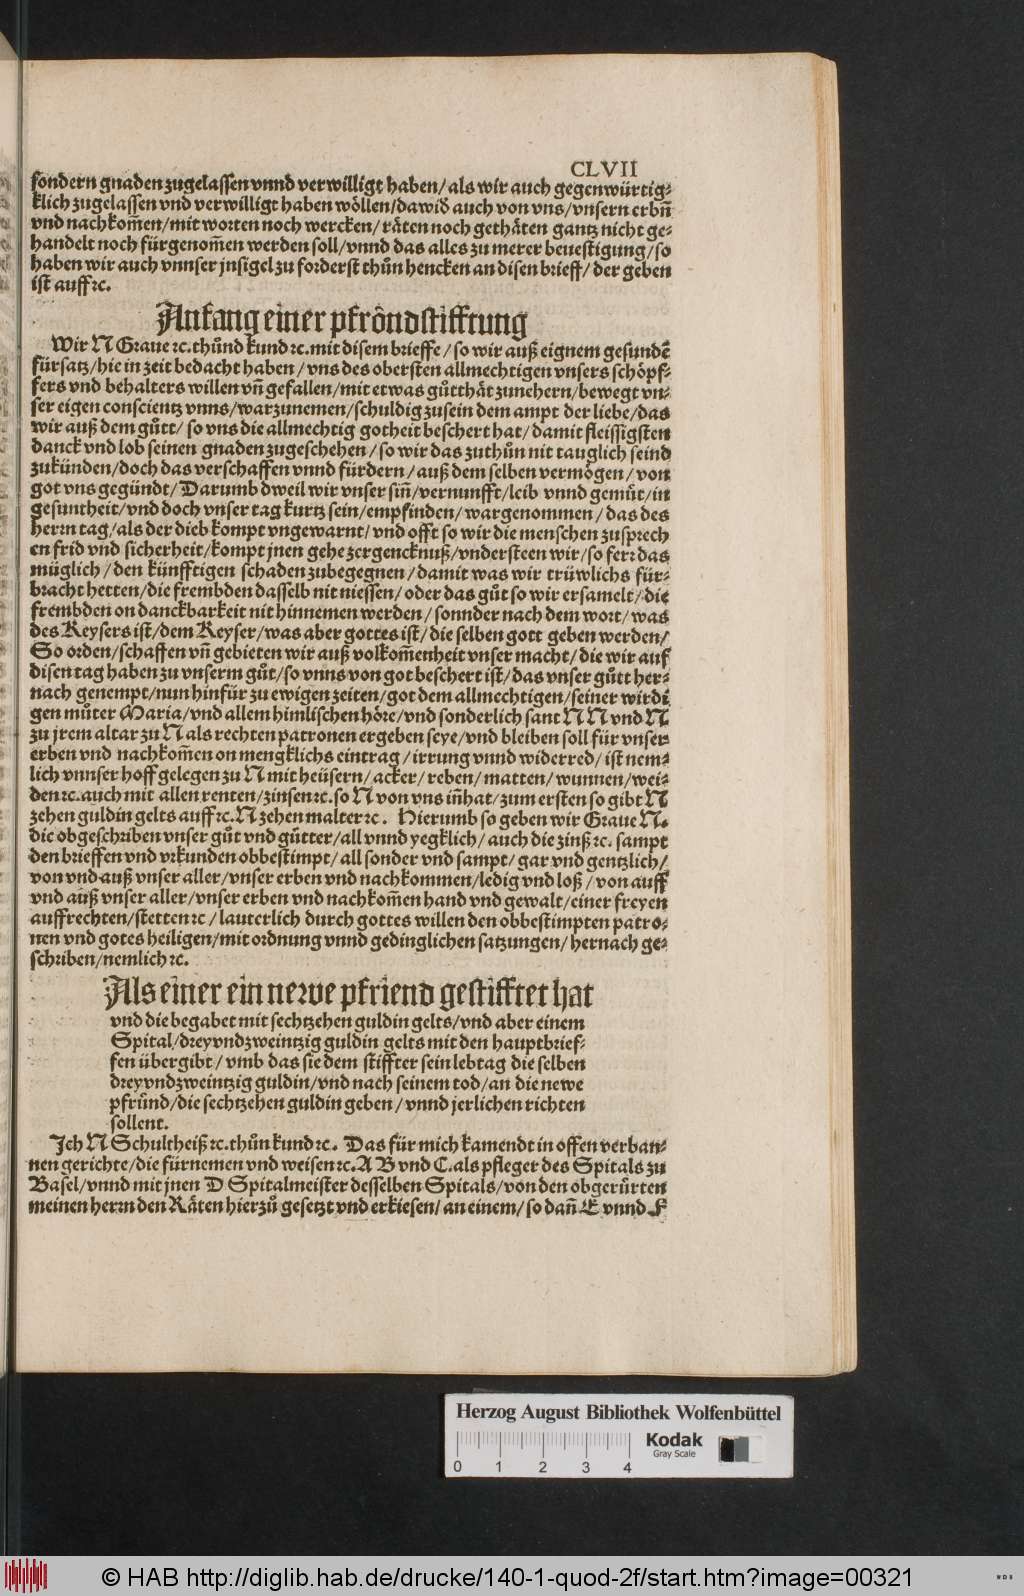 CLVII
sondern gnaden zugelassen vnnd verwilligt haben/ als wir auch gegenwürtig⸗
klich zugelassen vnd verwilligt haben wöllen/dawid auch von vns/vnsern erbñ
vnd nachkom̃en/mit worten noch wercken/ räten noch gethäten gantz nicht ge⸗
handelt noch fürgenom̃en werden soll/vnnd das alles zu merer beuestigung/so
haben wir auch vnnser jnsigel zu forderst thůn hencken an disen brieff/ der geben
ist auff ꝛc.
Anfang einer pfröndstifftung
Wir N Graue ꝛc. thůnd kund ꝛc. mit disem brieffe/ so wir auß eignem gesundẽ
fürsatz/hie in zeit bedacht haben/ vns des obersten allmechtigen vnsers schöpf⸗
fers vnd behalters willen vñ gefallen/mit etwas gůtthät zunehern/bewegt vn⸗
ser eigen conscientz vnns/warzunemen/schuldig zusein dem ampt der liebe/das
wir auß dem gůtt/ so vns die allmechtig gotheit beschert hat/ damit fleissigsten
danck vnd lob seinen gnaden zugeschehen/ so wir das zuthůn nit tauglich seind
zukünden/doch das verschaffen vnnd fürdern/ auß dem selben vermögen/ von
got vns gegündt/ Darumb dweil wir vnser siñ/vernunfft/leib vnnd gemůt/in
gesuntheit/vnd doch vnser tag kurtz sein/empfinden/ wargenommen/ das des
herrn tag/als der dieb kompt vngewarnt/ vnd offt so wir die menschen zusprech
en frid vnd sicherheit/kompt jnen gehe zergencknuß/vndersteen wir/so ferꝛ das
müglich/ den künfftigen schaden zubegegnen/ damit was wir trüwlichs für⸗
bracht hetten/die frembden dasselb nit niessen/ oder das gůt so wir ersamelt/ die
frembden on danckbarkeit nit hinnemen werden/ sonnder nach dem wort/ was
des Keysers ist/dem Keyser/was aber gottes ist/ die selben gott geben werden/
So orden/schaffen vñ gebieten wir auß volkom̃enheit vnser macht/ die wir auf
disen tag haben zu vnserm gůt/so vnns von got beschert ist/ das vnser gůtt her⸗
nach genempt/nun hinfür zu ewigen zeiten/got dem allmechtigen/seiner wirdi⸗
gen můter Maria/vnd allem himlischen höre/vnd sonderlich sant N N vnd N
zu jrem altar zu N als rechten patronen ergeben seye/vnd bleiben soll für vnser
erben vnd nachkom̃en on mengklichs eintrag/ irrung vnnd widerred/ ist nem⸗
lich vnnser hoff gelegen zu N mit heüsern/ acker/ reben/ matten/ wunnen/wei⸗
den ꝛc. auch mit allen renten/ zinsen ꝛc. so N von vns iñhat/ zum ersten so gibt N
zehen guldin gelts auff ꝛc. N zehen malter ꝛc. Hierumb so geben wir Graue N.
die obgeschriben vnser gůt vnd gůtter/all vnnd yegklich/ auch die zinß ꝛc. sampt
den brieffen vnd vrkunden obbestimpt/ all sonder vnd sampt/ gar vnd gentzlich/
von vnd auß vnser aller/vnser erben vnd nachkommen/ledig vnd loß/ von auff
vnd auß vnser aller/vnser erben vnd nachkom̃en hand vnd gewalt/einer freyen
auffrechten/stetten ꝛc / lauterlich durch gottes willen den obbestimpten patro⸗
nen vnd gotes heiligen/mit ordnung vnnd gedinglichen satzungen/ hernach ge⸗
schriben/nemlich ꝛc.
Als einer ein newe pfriend gestifftet hat
vnd die begabet mit sechtzehen guldin gelts/vnd aber einem
Spital/dreyvndzweintzig guldin gelts mit den hauptbrief⸗
fen übergibt/ vmb das sie dem stiffter sein lebtag die selben
dreyvndzweintzig guldin/vnd nach seinem tod/an die newe
pfründ/die sechtzehen guldin geben/ vnnd jerlichen richten
sollent.
Ich N Schultheiß ꝛc. thůn kund ꝛc. Das für mich kamendt in offen verban⸗
nen gerichte/die fürnemen vnd weisen ꝛc. A B vnd C. als pfleger des Spitals zu
Basel/vnnd mit jnen D Spitalmeister desselben Spitals/von den obgerůrten
meinen herrn den Räten hierzů gesetzt vnd erkiesen/ an einem/ so dañ E vnnd F
Herzog August Bibliothek Wolfenbüttel
Kodak
Gray Scale
0 1 2 3 4
© HAB http://diglib.hab.de/drucke/140-1-quod-2f/start.htm?image=00321